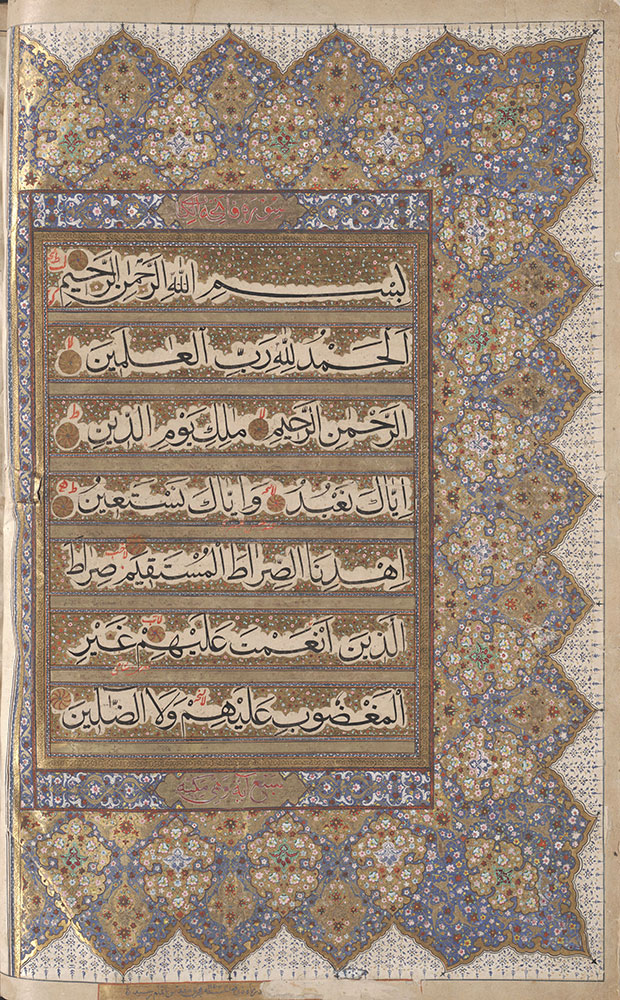 بِسْمِ اللهِ الرَّحْمٰنِ الرَّحِيمِ
اَلْحَمْدُ لِلّٰهِ رَبِّ الْعٰلَمِينَ
الرَّحْمٰنِ الرَّحِيمِ مٰلِكِ يَوْمِ الدِّينِ
اِيَّاكَ نَعْبُدُ وَاِيَّاكَ نَسْتَعِينُ
اِهْدِنَا الصِّرَاطَ الْمُسْتَقِيمَ صِرَاطَ
الَّذِينَ اَنْعَمْتَ عَلَيْهِمْ غَيْرِ
الْمَغْضُوبِ عَلَيْهِمْ وَلَا الضَّالِّينَ